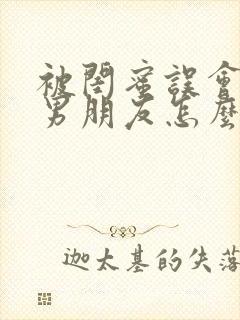 被閨蜜誤會
男朋友怎麼
迦太基的失落